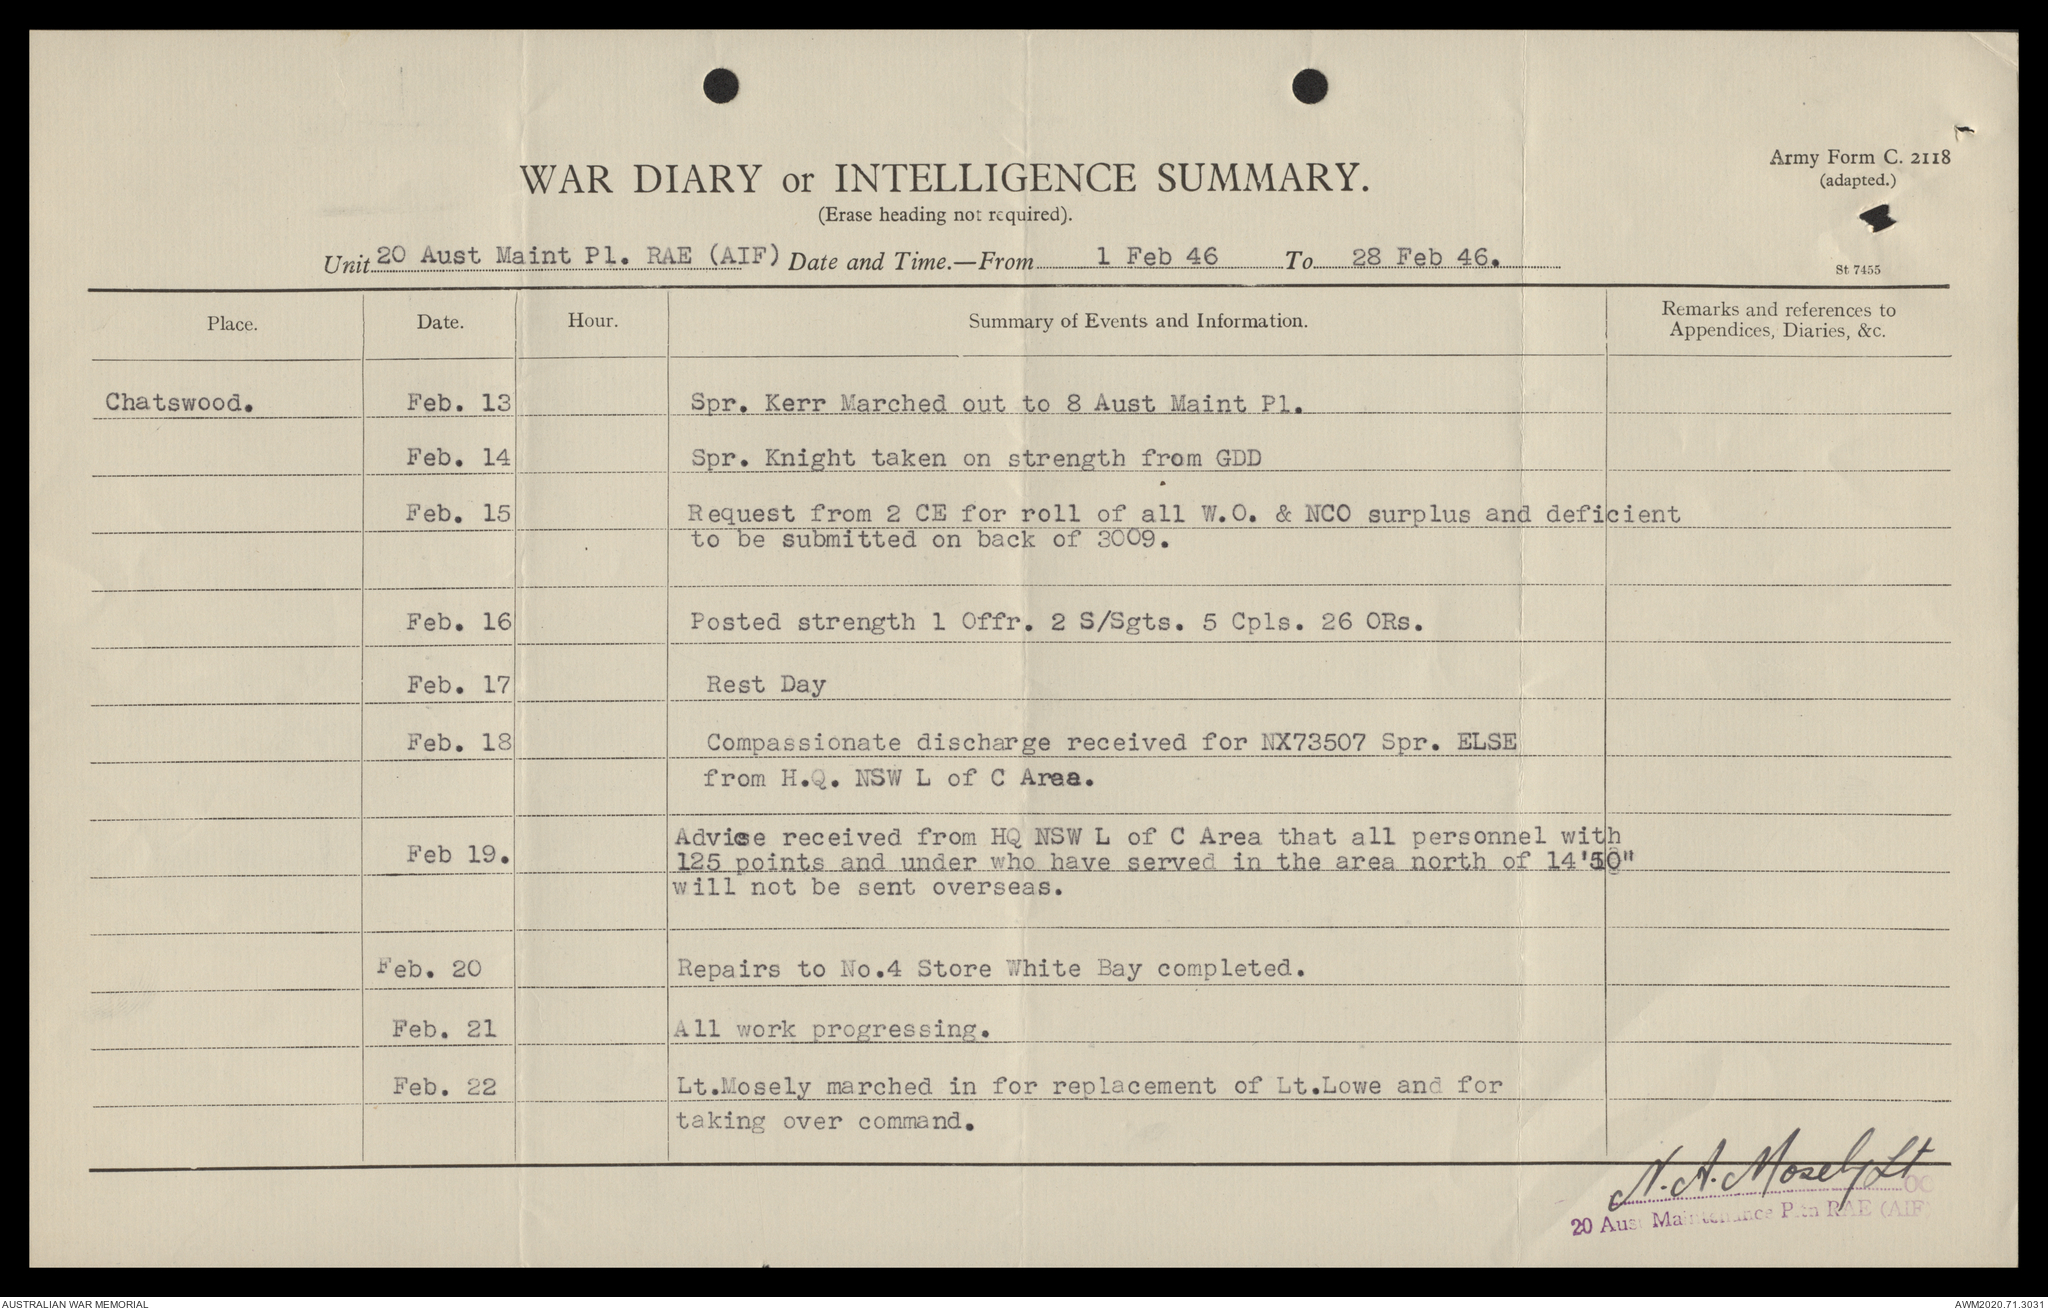 Army Form C. 2118
(adapted.)
WAR DIARY or INTELLIGENCE SUMMARY.
(Erase heading not required).
Unit 20 Aust Maint Pl. RAE (AIF) Date and Time.—From 1 Feb 46 To 28 Feb 46.
St 7455
Place. Date. Hour. Summary of Events and Information. Remarks and references to
Appendices, Diaries, &c.
Chatswood. Feb. 13 Spr. Kerr Marched out to 8 Aust Maint Pl.
Feb. 14 Spr. Knight taken on strength from GDD
Feb. 15 Request from 2 CE for roll of all W.O. & NCO surplus and deficient
to be submitted on back of 3009.
Feb. 16 Posted strength 1 Offr. 2 S/Sgts. 5 Cpls. 26 ORs.
Feb. 17 Rest Day
Feb. 18 Compassionate discharge received for NX73507 Spr. ELSE
from H.Q. NSW L of C Area.
Feb 19. Advice received from HQ NSW L of C Area that all personnel with
125 points and under who have served in the area north of
will not be sent overseas.
Feb. 20 Repairs to No.4 Store White Bay completed.
Feb. 21 All work progressing.
Feb. 22 Lt.Mosely marched in for replacement of Lt.Lowe and for
taking over command.
N. A. Mosely Lt
OC
20 Aust Maintenance Pltn RAE (AIF)
AUSTRALIAN WAR MEMORIAL AWM2020.71.3031